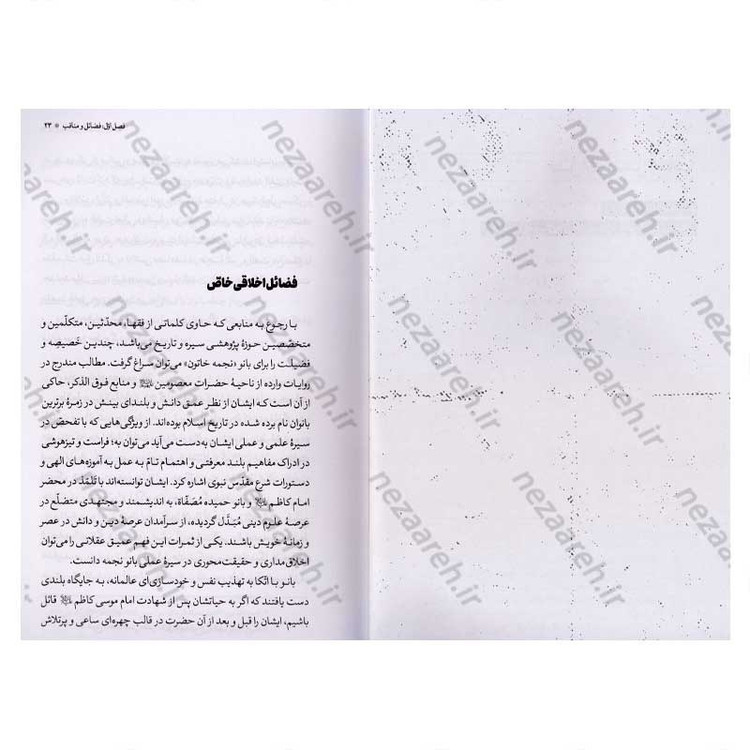 فصل اول: فضائل و مناقب * ۲۳
فضائل اخلاقی خاصّ
با رجوع به منابعی که حاوی کلماتی از فقها، محدّثین، متکلّمین و
متخصّصین حوزهٔ پژوهشی سیره و تاریخ می‌باشد، چندین خَصیصه و
فضیلت را برای بانو «نجمه خاتون» می‌توان سراغ گرفت. مطالب مندرج در
روایات وارده از ناحیهٔ حضرات معصومین و منابع فوق الذکر، حاکی
از آن است که ایشان از نظر عمق دانش و بلندای بینش در زمرهٔ برترین
بانوان نام برده شده در تاریخ اسلام بوده‌اند. از ویژگی‌هایی که با تفحّص در
سیرهٔ علمی و عملی ایشان به‌دست می‌آید می‌توان به؛ فراست و تیزهوشی
در ادراک مفاهیم بلند معرفتی و اهتمام تامّ به عمل به آموزه‌های الهی و
دستورات شرع مقدّس نبوی اشاره کرد. ایشان توانسته‌اند با تَلَمُّذ در محضر
امام کاظم و بانو حمیده مُصَفّاة، به اندیشمند و مجتهدی متضلّع در
عرصهٔ علوم دینی مُبَدَّل گردیده، از سرآمدان عرصهٔ دین و دانش در عصر
و زمانهٔ خویش باشند. یکی از ثمرات این فهم عمیق عقلانی را می‌توان
اخلاق‌مداری و حقیقت‌محوری در سیرهٔ عملی بانو نجمه دانست.
بانو با اتّکا به تهذیب نفس و خودسازی‌ای عالمانه، به جایگاه بلندی
دست یافتند که اگر به حیاتشان پس از شهادت امام موسی کاظم قائل
باشیم، ایشان را قبل و بعد از آن حضرت در قالب چهره‌ای ساعی و پرتلاش
nezaareh.ir
nezaareh.ir
nezaareh.ir
nezaareh.ir
nezaareh.ir
nezaareh.ir
nezaareh.ir
nezaareh.ir
nezaareh.ir
nezaareh.ir
nezaareh.ir